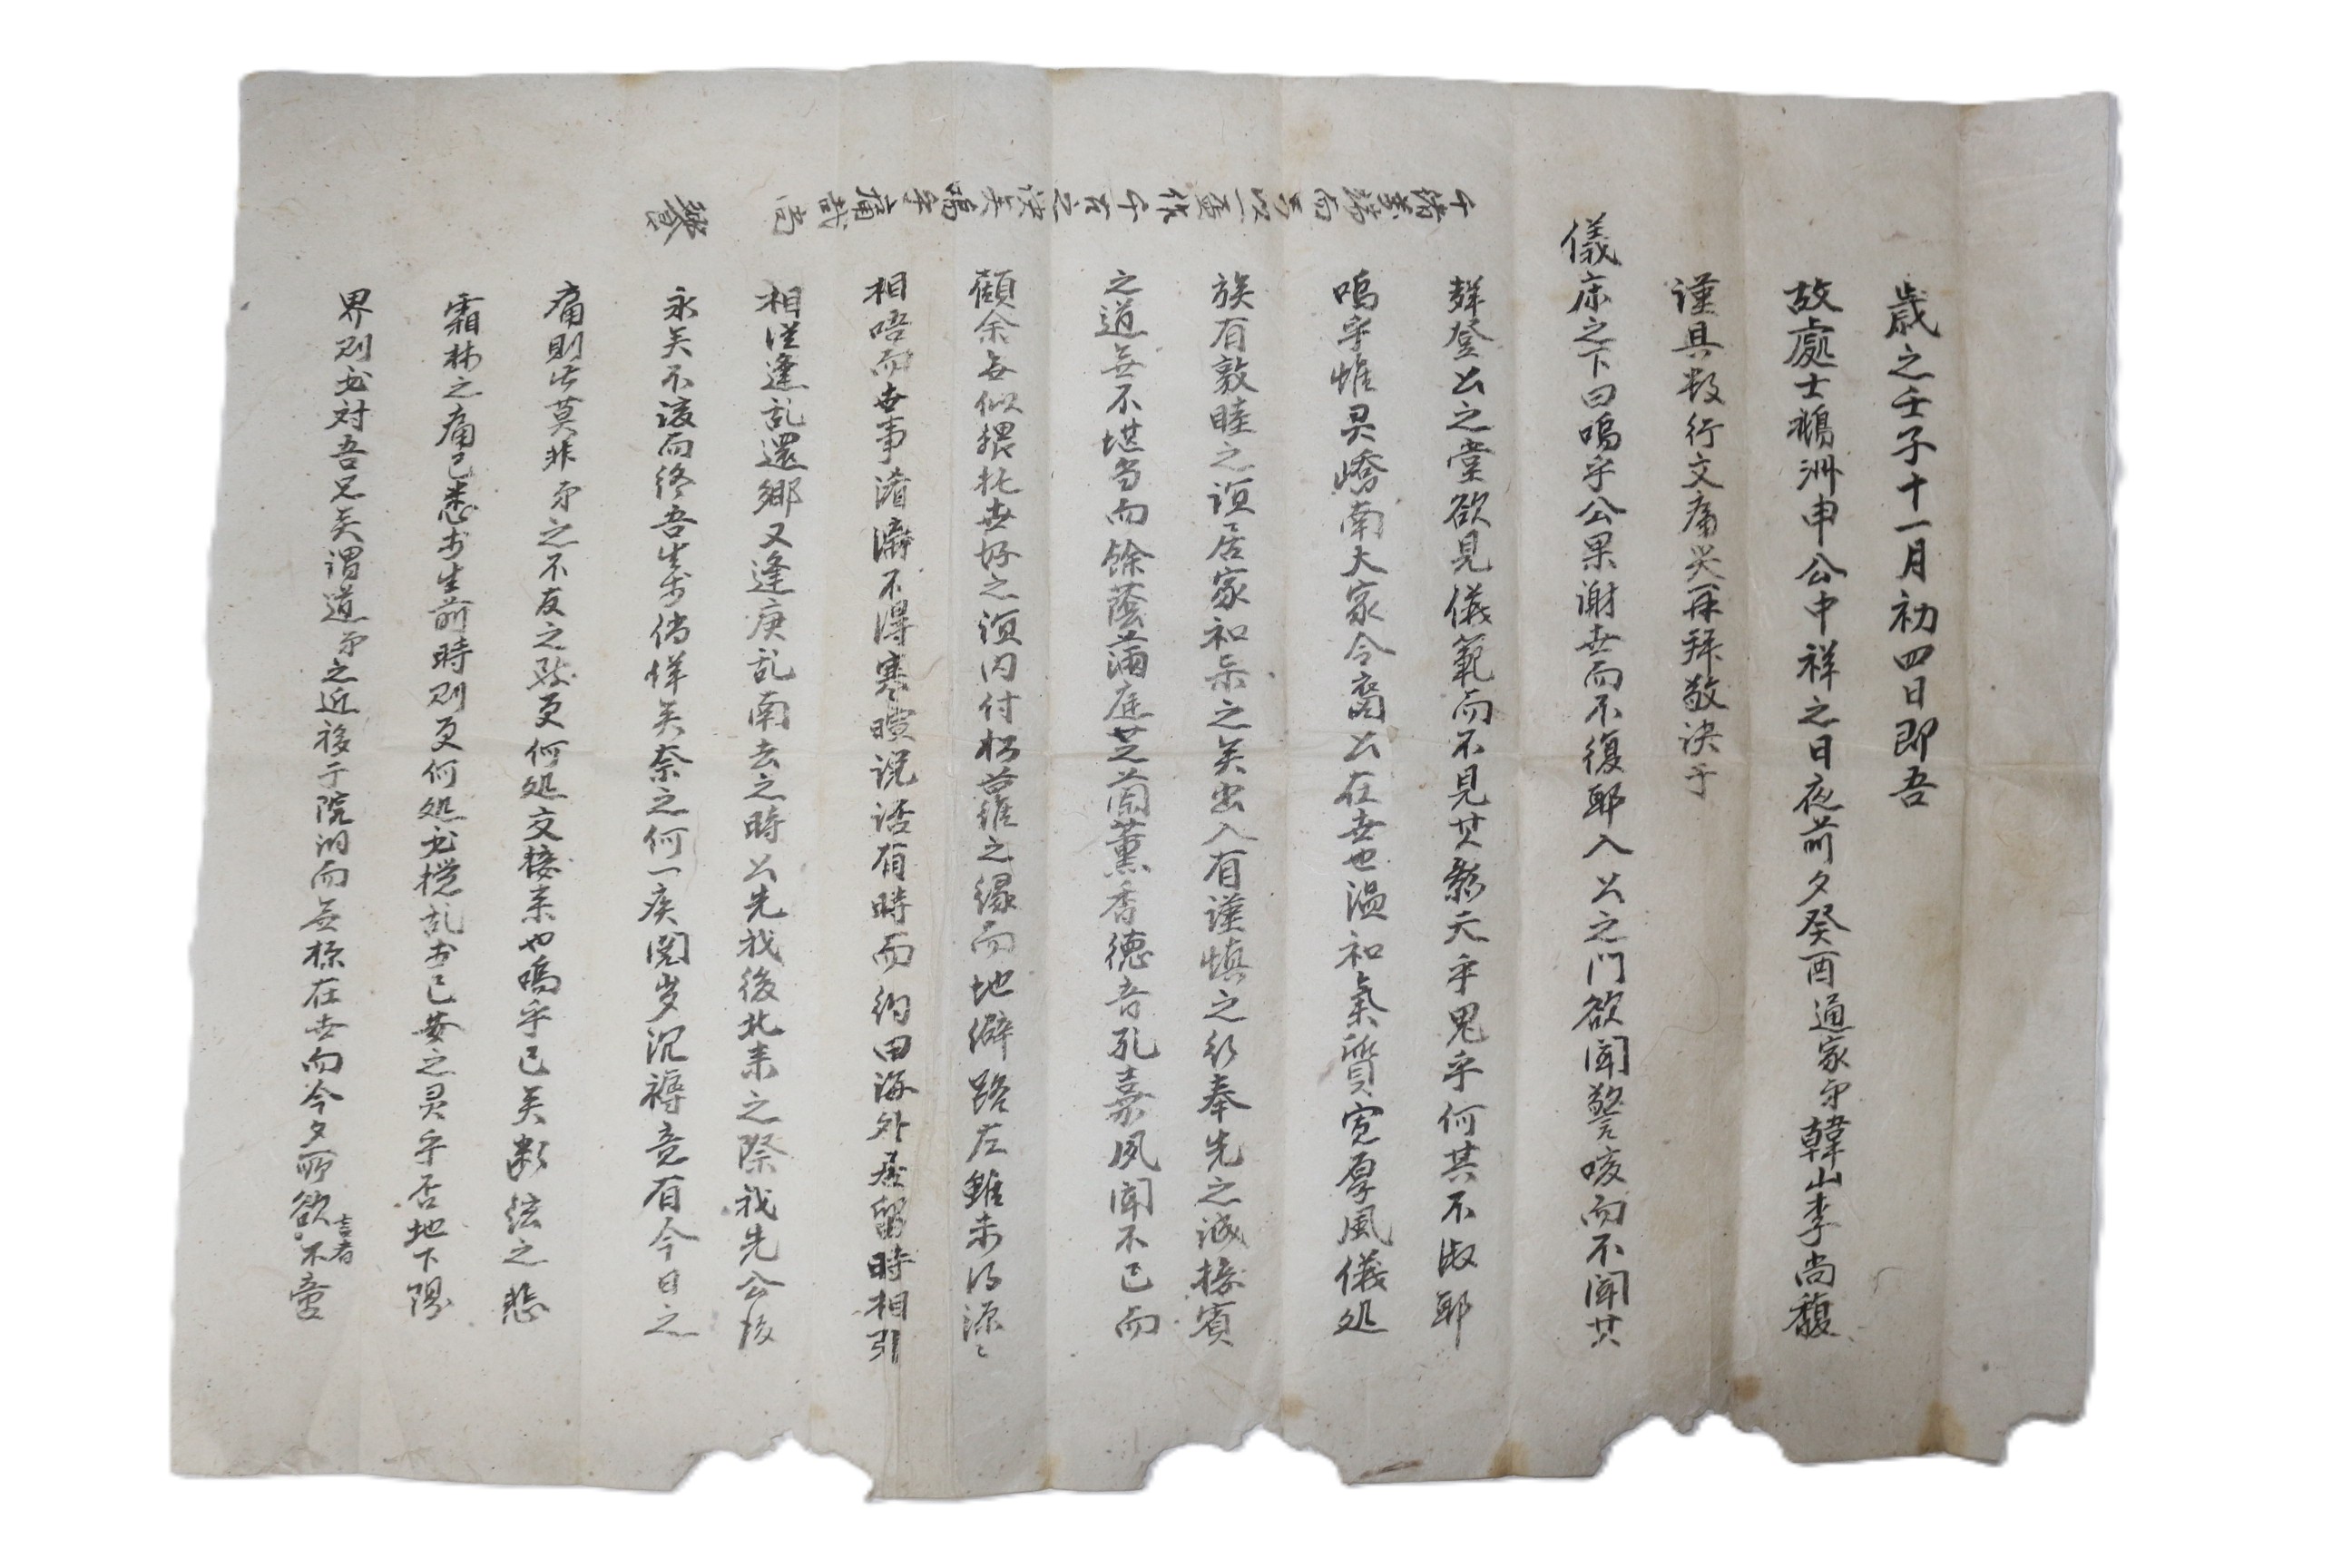 歲之壬子十一月初四日即吾
故處士鵝洲申公中祥之日夜前夕癸酉通家弟韓山李尚馥
謹具数行文痛哭再拜敬決于
儀床之下曰嗚乎公果謝世而不復耶入公之門欲聞警咳而不聞其
聲登公之堂欲見儀範而不見其影天乎鬼乎何其不淑耶
嗚乎惟灵嶠南大家令裔公在世也溫和氣質寛厚風儀処
族有敦睦之誼居家和樂之美出入有謹慎之行奉先之誠接賓
之道無不堪當而餘蔭滿庭芝蘭薰香德音孔嘉夙聞不已而
顧余無似猥托世好之誼内付松蘿之緣而地僻路左雖未得源〻
相唔而世事渚濟不得寒暄說話有時而約田海外居留時相引
相從逢乱還鄉又逢庚乱南去之時公先我後北来之際我先公後
永矣不諼而終吾生お倘佯矣奈之何一疾閱岁沉褥竟有今日之
痛則此莫非弟之不友之致更何処交接来也嗚乎已矣斷弦之悲
霜林之痛已悉於生前時則更何処必攪乱於已安之灵乎否地下陽
界則必対吾兄矣謂道弟之近移于院洞而無樣在世而今夕所欲言者不啻
千緒萬端而忍以一盃代千古之決矣嗚乎痛哉尚
饗